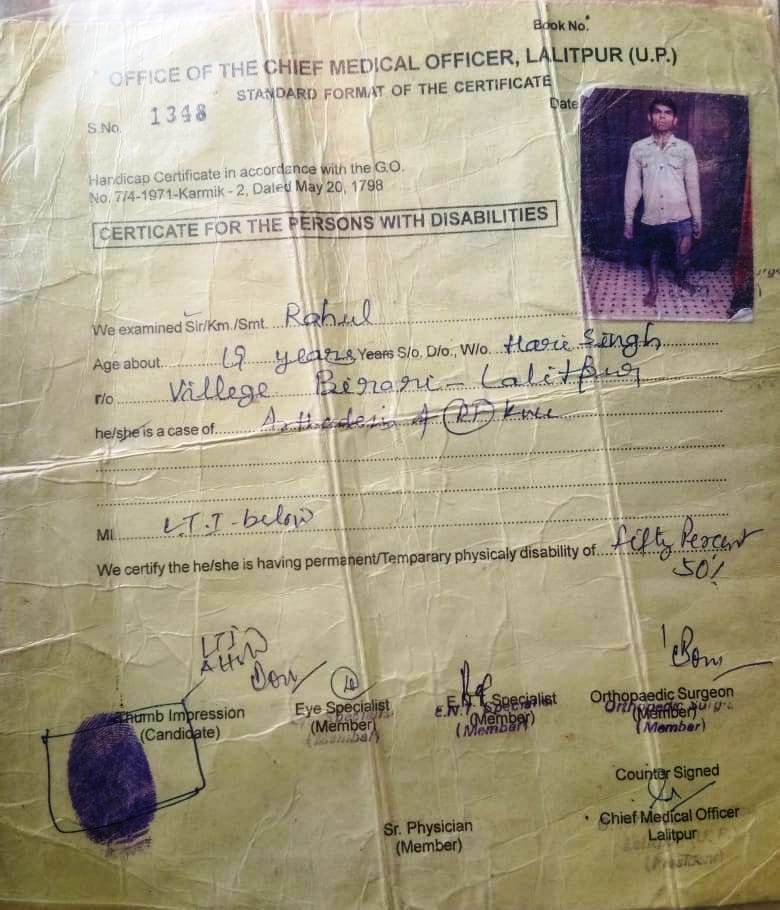 Book No.
OFFICE OF THE CHIEF MEDICAL OFFICER, LALITPUR (U.P.)
STANDARD FORMAT OF THE CERTIFICATE
S.No. 1348
Date
Handicap Certificate in accordance with the G.O.
No. 7/4-1971-Karmik - 2, Dated May 20, 1798
CERTICATE FOR THE PERSONS WITH DISABILITIES
We examined Sir/Km./Smt. Rahul
Age about 19 years Years S/o, D/o., W/o. Harie Singh
r/o Villege Birari - Lalitpur
he/she is a case of of RT Knee
MI. L.T.I - below
We certify the he/she is having permanent/Temparary physicaly disability of fifty Percent
50%
LTI
Thumb Impression
(Candidate)
Eye Specialist
(Member)
(Member)
E.N.T. Specialist
E.N.T. Specialist
(Member)
(Member)
Orthopaedic Surgeon
Orthopedic Surge
(Member)
(Member)
Counter Signed
Chief Medical Officer
Lalitpur
Sr. Physician
(Member)